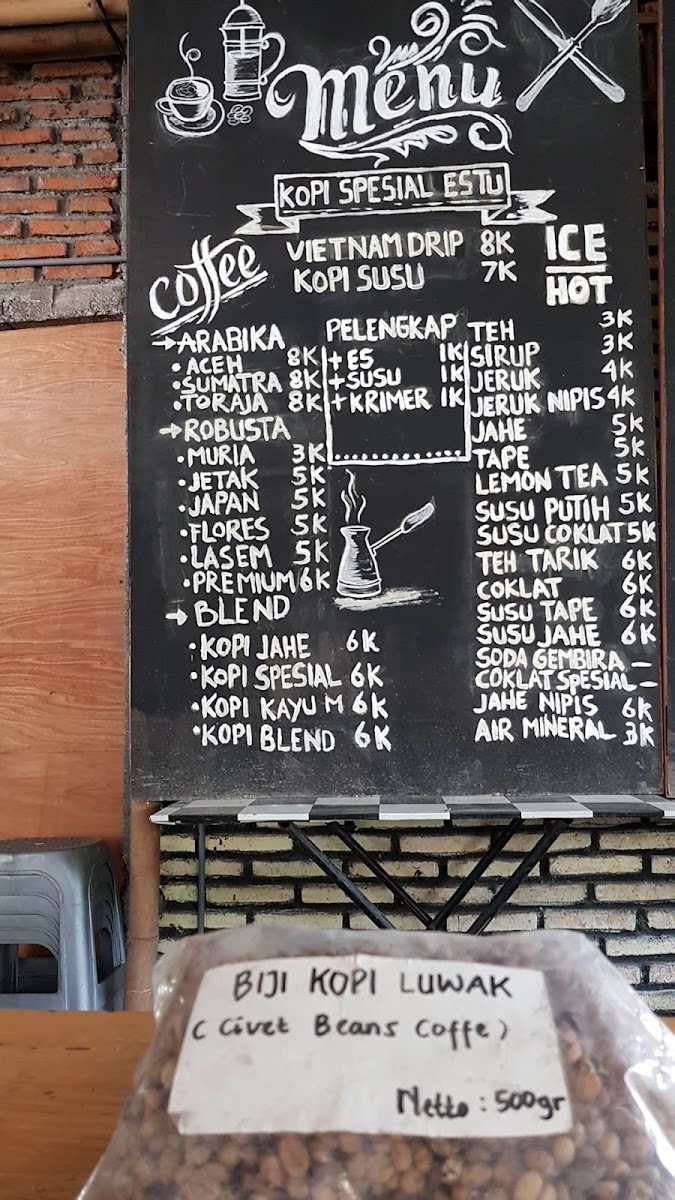 Menu
KOPI SPESIAL ESTU
coffee
VIETNAM DRIP 8K
KOPI SUSU 7K
ICE
HOT
→ARABIKA
• ACEH 8K
• SUMATRA 8K
• TORAJA 8K
→ROBUSTA
• MURIA 3K
• JETAK 5K
• JAPAN 5K
• FLORES 5K
• LASEM 5K
• PREMIUM 6K
→BLEND
• KOPI JAHE 6K
• KOPI SPESIAL 6K
• KOPI KAYU M 6K
• KOPI BLEND 6K
PELENGKAP
+ ES 1K
+ SUSU 1K
+ KRIMER 1K
TEH 3K
SIRUP 3K
JERUK 4K
JERUK NIPIS 4K
JAHE 5K
TAPE 5K
LEMON TEA 5K
SUSU PUTIH 5K
SUSU COKLAT 5K
TEH TARIK 6K
COKLAT 6K
SUSU TAPE 6K
SUSU JAHE 6K
SODA GEMBIRA –
COKLAT SPESIAL –
JAHE NIPIS 6K
AIR MINERAL 3K
BIJI KOPI LUWAK
( Civet Beans Coffe )
Netto : 500gr